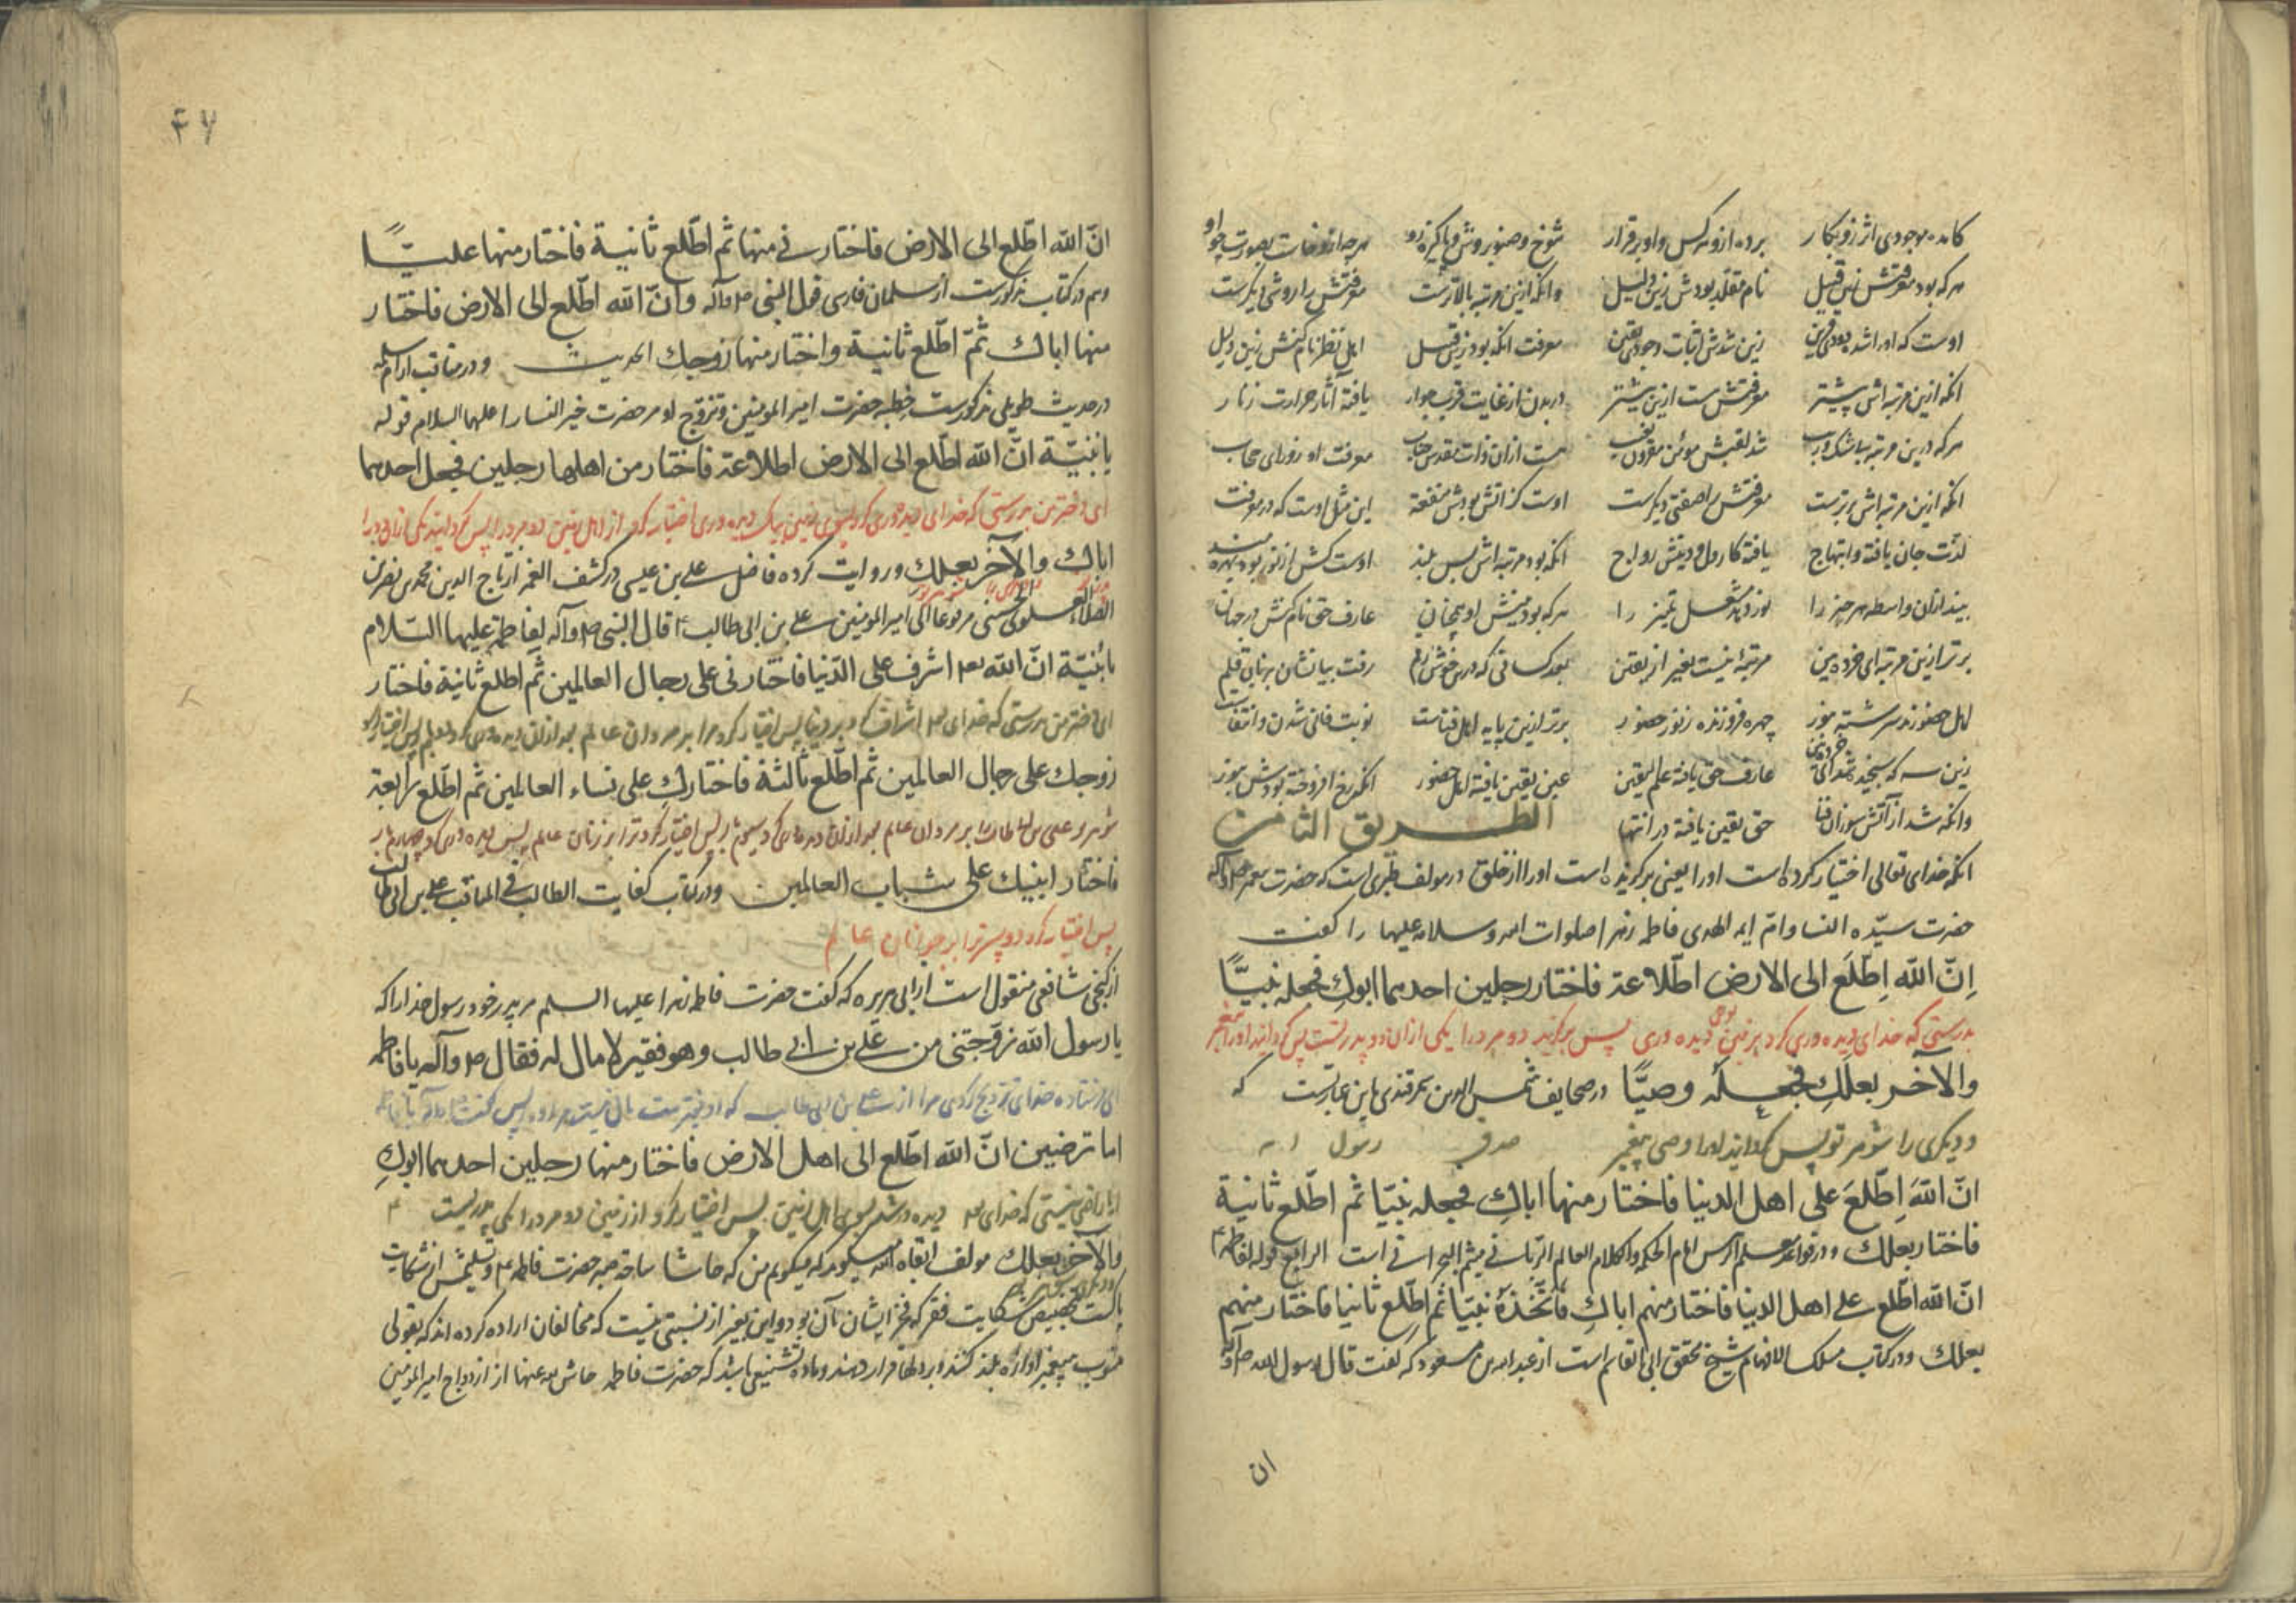 کامده موجودی اثر زو بکار برده ازو هر کس و او برقرار شوخ و صنوبر وش و پاکیزه رو هر چه ازو خاست بصورت چو او
هر که بود معرفتش زین قبیل نام مقلد بودش زین دلیل وانکه ازین مرتبه بالاترست معرفتش را روشی دیگرست
اوست که او راشد بود قرین زین شدش اثبات وجود یقین معرفت انکه بود زین قبیل اهل نظر نام کنش زین دلیل
انکه ازین مرتبه اش پیشتر معرفتش هست ازین بیشتر در بدن از غایت قرب جوار یافته آثار حرارت ز نار
هر که درین مرتبه بیشک و ریب شد لقبش مؤمن مقرون بغیب هست ازان ذات مقدس جناب معرفت او ز ورای حجاب
انکه ازین مرتبه اش برترست معرفتش را صفتی دیگرست اوست کز آتش بودش منفعة این مثل اوست که در معرفت
لذت جان یافته و ابتهاج یافته کار دل و دینش رواج انکه بود مرتبه اش بس بلند اوست کش از نور بود بهره مند
بیند ازان واسطه هر چیز را نور دهد مشعل تمیز را هر که بود بینش او همچنان عارف حق نام کنش در جهان
برتر ازین مرتبه ای خرده بین مرتبهٔ نیست بغیر از یقین بود کسانی که درین خوش رقم رفت بیانشان بزبان قلم
اهل حضورند سرشته بنور چهره فروزنده ز نور حضور برتر ازین پایه اهل فناست نوبت فانی شدن و انتفاست
زین سه که سنجیده شد ای خرده بین عارف حق یافته علم الیقین عین یقین یافته اهل حضور انکه رخ افروخته بودش بنور
وانکه شد از آتش سوزان فنا حق یقین یافته در انتها الطریق الثامن
انکه خدای تعالی اختیار کرده است او را یعنی برگزیده است او را از خلق در مولف طبری است که حضرت پیغمبر ص و آله
حضرت سیّده النسا و امّ ایمه الهدی فاطمه زهرا صلوات الله و سلامه علیها را گفت
اِنّ اللّه اِطّلَع الی الارض اطّلاعة فاختار رجلین احدهما ابوكِ فجعله نبیًّا
بدرستی که خدای دیده وری کرد بر زمین نوعی دیده وری پس برگزید دو مرد را یکی ازان دو پدر تست پس گردانید او را پیغمبر
والآخر بعلكِ فجعله وصیًّا در صحایف شمس الدین سمرقندی باین عبارتست که
و دیگری را شوهر تو پس گردانید او را وصی پیغمبر صدق رسول الله
انّ اللّهَ اِطّلعَ علی اهل الدنیا فاختار منها اباكِ فجعله نبیّا ثم اطّلع ثانیة
فاختار بعلك و در قواعد امام الحکمه و الکلام العالم الربانی میثم البحرانی است الرابع قوله لفاطمة ع
انّ اللّه اطّلع علی اهل الدنیا فاختار منهم اباكِ فاتّخذهٔ نبیّا ثم اطّلع ثانیا فاختار منهم
بعلك و در کتاب مسلک الافهام شیخ محقق ابی القاسم است از عبدالله بن مسعود که گفت قال رسول الله ص و آله
ان
۴۷
انّ اللّه اطّلع الی الارض فاختارنی منها ثم اطّلع ثانیة فاختار منها علیًّا
و هم در کتاب مذکورست از سلمان فارسی قول النبی ص و آله و انّ الله اطّلع الی الارض فاختار
منها اباك ثمّ اطّلع ثانیة و اختار منها زوجكِ الحدیث و در مناقب
در حدیث طویلی مذکورست خطبه حضرت امیر المومنین و تزوّج او مر حضرت خیر النسا را علیهما السلام قوله
یا بنیّة انّ اللّه اطّلع الی الارض اطلاعة فاختار من اهلها رجلین فجعل احدهما
ای دختر من بدرستی که خدای دیده وری کرد بسوی زمین بیک دیده وری اختیار کرد از اهل زمین دو مرد را پس گردانید یکی ازان دو را
اباك والآخر بعلك و روایت کرده فاضل علی بن عیسی در کشف الغمه از تاج الدین محمد بن نصر بن
العلوی الحسنی مرفوعا الی امیر المومنین علی بن ابی طالب ع قال النبی ص و آله لفاطمة علیها السّلام
یا بُنیّة انّ اللّه اشرف علی الدّنیا فاختارنی علی رجال العالمین ثم اطّلع ثانیة فاختار
ای دختر من بدرستی که خدای اشراف کرد بر دنیا پس اختیار کرد مرا بر مردان عالم بعد ازان دیده وری کرد پس اختیار کرد
زوجك علی رجال العالمین ثم اطّلع ثالثة فاختاركِ علی نساء العالمین ثم اطّلع رابعة
شوهر تو علی بن ابی طالب را بر مردان عالم بعد ازان دیده وری کرد سیم بار پس اختیار کرد ترا بر زنان عالم پس دیده وری کرد چهارم بار
فاختار ابنیك علی شباب العالمین و در کتاب کفایت الطالب فی المناقب علی بن ابی طالب
پس اختیار کرد دو پسر ترا بر جوانان عالم
از گنجی شافعی منقول است از ابی هریره که گفت حضرت فاطمه زهرا علیها السلم مر پدر خود رسول خدا را که
یا رسول اللّه زوّجتنی من علی بن ابی طالب وهو فقیر لا مال له فقال ص و آله یا فاطمه
ای فرستاده خدای تزویج کردی مرا از علی بن ابی طالب که او فقیرست مال نیست مر او را پس گفت
اما ترضین انّ اللّه اطّلع الی اهل الارض فاختار منها رجلین احدهما ابوكِ
ایا راضی نیستی که خدای دیده ور شد بسوی اهل زمین پس اختیار کرد از زمین دو مرد را یکی پدر تست
والآخر بعلك مولف ابقاه الله میگوید که میگویم من که حاشا ساحة حضرت فاطمه از شکایت
شکایت فقر که فخر ایشان بآن بود و این بغیر از نسبتی نیست که مخالفان اراده کرده اند که بقولی
منسوب به پیغمبر اوازه بلند کنند و بر دلها قرار دهند و ماده تشنیعی باشد که حضرت فاطمه از ازدواج امیر المومنین